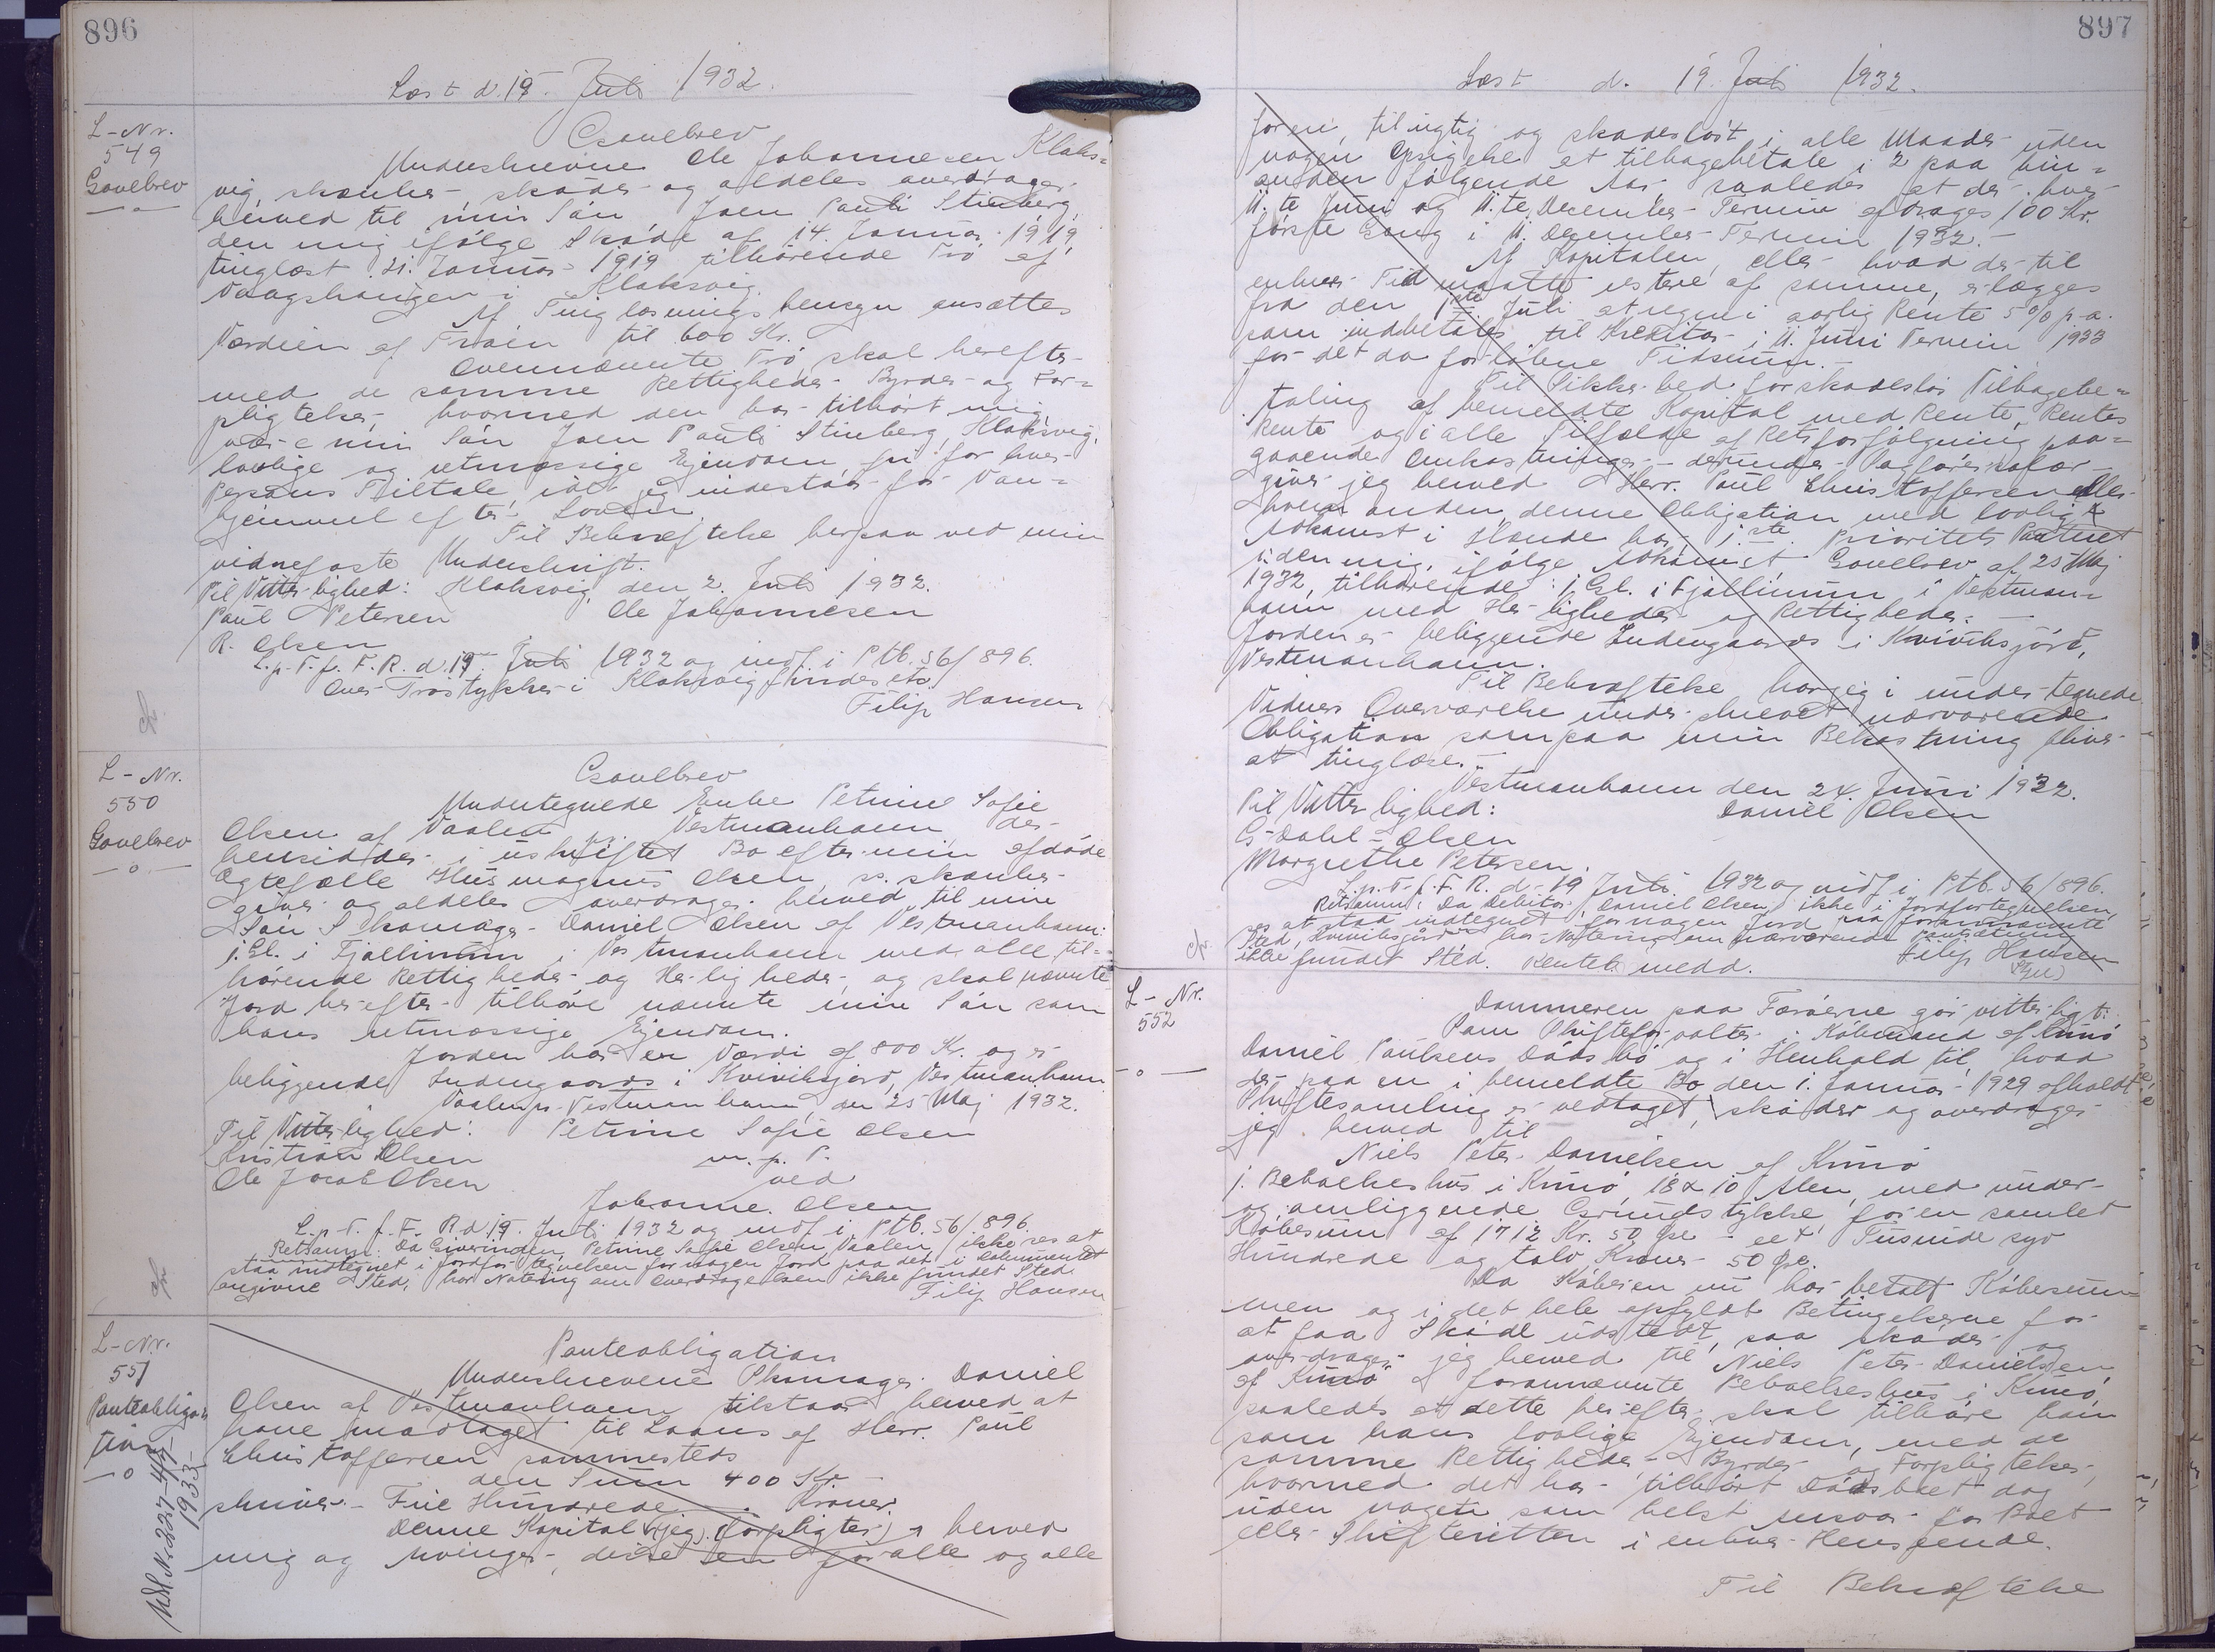 896
Læst d. 19. Juli 1932.
L-Nr.
549
Gavebrev
Gavebrev
Underskrevne Ole Johannesen Klaks=
vig, skænker, skøder og aldeles overdrager
herved til min Søn, Joen Pauli Stinberg,
den mig ifølge Skøde af 14. Januar 1919,
tinglæst 21. Januar 1919 tilhørende Trø af
Vaagshaugen i Klaksvig.
Af Tinglæsnings hensyn ansættes
Værdien af Trøen til 600 Kr.
Ovennævnte Trø skal herefter
med de samme Rettigheder, Byrder og For=
pligtelser, hvormed den har tilhørt mig,
være min Søn Joen Pauli Stinberg, Klaksvig,
lovlige og retmæssige Ejendom, fri for hver
Persons Tiltale, idet jeg indestaar for Van=
hjemmel efter Loven.
Til Bekræftelse herpaa ved min
vidnefaste Underskrift.
Til Vitterlighed: Klaksvig, den 2. Juli 1932.
Paul Petersen Ole Johannesen
R. Olsen
L.p.T.f.F.R. d. 19. Juli 1932 og indf. i Ptb. 56/896.
Over Trøstykker i Klaksvig findes etc.
Filip Hansen
L-Nr.
550
Gavebrev
Gavebrev
Undertegnede Enke Petrine Sofie
Olsen af Vaalen pr. Vestmanhavn, der
hensidder i uskiftet Bo efter min afdøde
Ægtefælle Hus magnus Olsen s. skænker
giver og aldeles overdrager herved til min
Søn Skomager Daniel Olsen af Vestmanhavn:
1 Gl. i Fjallinum i Vestmanhavn med alle til=
hørende Rettigheder og Herligheder, og skal nævnte
Jord herefter tilhøre nævnte min Søn som
hans retmæssige Ejendom.
Jorden har en Værdi af 800 Kr. og er
beliggende Indengaards i Kvivíksjørd, Vestmanhavn.
Vaalen pr. Vestmanhavn, den 25 Maj 1932.
Til Vitterlighed: Petrine Sofie Olsen
Kristian Olsen m. p. P.
Ole Jacob Olsen ved
Johanne Olsen
L.p.T.f.F.R. d. 19. Juli 1932 og indf. i Ptb. 56/896.
Retsanm: Da Giverinden, Petrine Sofie Olsen, Vaalen, ikke ses at
staa indtegnet i Jordfortegnelsen for nogen Jord paa det i Dokumentet
angivne Sted, har Notering om Overdragelsen ikke fundet Sted.
Filip Hansen
L-Nr.
551
Panteobliga=
tion
Udsl. Nr. 227-4/7-
1933-
Panteobligation
Underskrevene Skomager Daniel
Olsen af Vestmanhavn tilstaar herved at
have modtaget til Laans af Herr. Paul
Christoffersen sammesteds
den Sum 400 Kr.
skriver - Fire Hundrede Kroner.
Denne Kapital (jeg) (forpligter) herved
mig og Arvinger, disse een for alle og alle
897
Læst d. 19. Juli 1932.
for en, til rigtig og skadesløst i alle Maader uden
nogen Opsigelse at tilbagebetale i 2 paa hin=
anden følgende Aar saaledes at der hver
11.te Juni og 11.te December Termin afdrages 100 Kr.
første Gang i 11. December Termin 1932.
Af Kapitalen, eller hvad der til
enhver Tid maatte restere af samme, erlægges
fra den 1ste Juli at regne i aarlig Rente 5% p.a.
som indbetales til Kreditor i 11. Juni Termin 1933
for det da forløbne Tidsrum.
Til Sikkerhed for skadesløs Tilbagebe=
taling af bemeldte Kapital med Rente, Rentes
Rente og i alle Tilfælde af Retsforfølgning paa=
gaaende Omkostninger - derunder Sagførersalær -
giver jeg herved Herr. Paul Christoffersen eller
hvem anden, denne Obligation med lovlig
Adkomst i Hænde har, 1.ste Prioritets Panteret
i den mig, ifølge Adkomst Gavebrev af 25 Maj
1932, tilhørende: 1 Gl. i Fjallinum i Vestman=
havn med Herligheder og Rettigheder.
Jorden er beliggende Indengaards i Kvivíksjørd,
Vestmanhavn.
Til Bekræftelse har jeg i undertegnede
Vidners Overværelse underskrevet nærværende
Obligation som paa min Bekostning bliver
at tinglæse.
Vestmanhavn den 24. Juni 1932.
Til Vitterlighed: Daniel Olsen
G. Dahl-Olsen
Margrethe Petersen.
L.p.T.f.F.R. d. 19 Juli 1932 og indf. i Ptb. 56/896.
Retsanm: Da Debitor, Daniel Olsen, ikke i Jordfortegnelsen,
ses at staa indtegnet for nogen Jord paa forannævnte
Sted, Kvivíksjørd, har Notering om nærværende Pantsætning
ikke fundet Sted. Rentebl. medd. Filip Hansen
L- Nr.
552
Dommeren paa Færøerne gør vitterligt:
Som Skifteforvalter i Købmand af Kunø
Daniel Poulsens Dødsbo og i Henhold til, hvad
der paa en i bemeldte Bo den 1. Januar 1929 afholdt
Skiftesamling er vedtaget, skøder og overdrager
jeg herved til
Niels Peter Danielsen af Kunø
1 Beboelseshus i Kunø, 18 x 10 Alen, med under-
og omliggende Grundstykke for en samlet
Købesum af 1712 Kr. 50 Øre - eet Tusinde syv
Hundrede og tolv Kroner 50 Øre.
Da Køberen nu har betalt Købesum=
men og i det hele opfyldt Betingelserne for
at faa Skøde udstedt, saa skøder og
overdrager jeg herved til Niels Peter Danielsen
af Kunø forannævnte Beboelseshus i Kunø,
saaledes at dette herefter skal tilhøre ham
som hans lovlige Ejendom, med de
samme Rettigheder, Byrder og Forpligtelser,
hvormed det har tilhørt Dødsboet dog
uden nogen som helst Ansvar for Boet
eller Skifteretten i enhver Henseende.
Til Bekræftelse